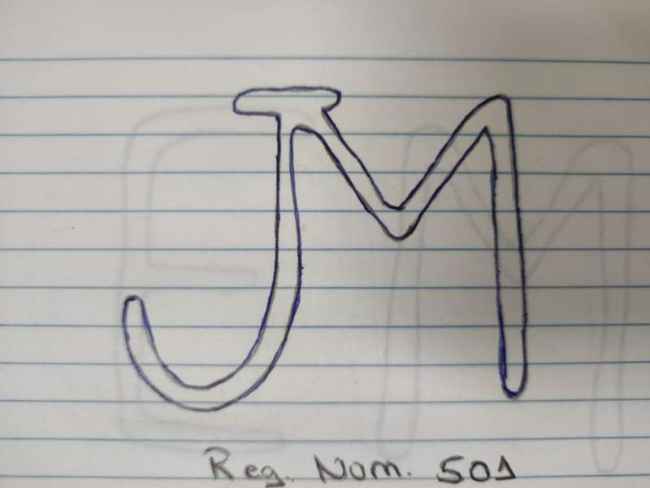 JM
Reg. Nom. 501